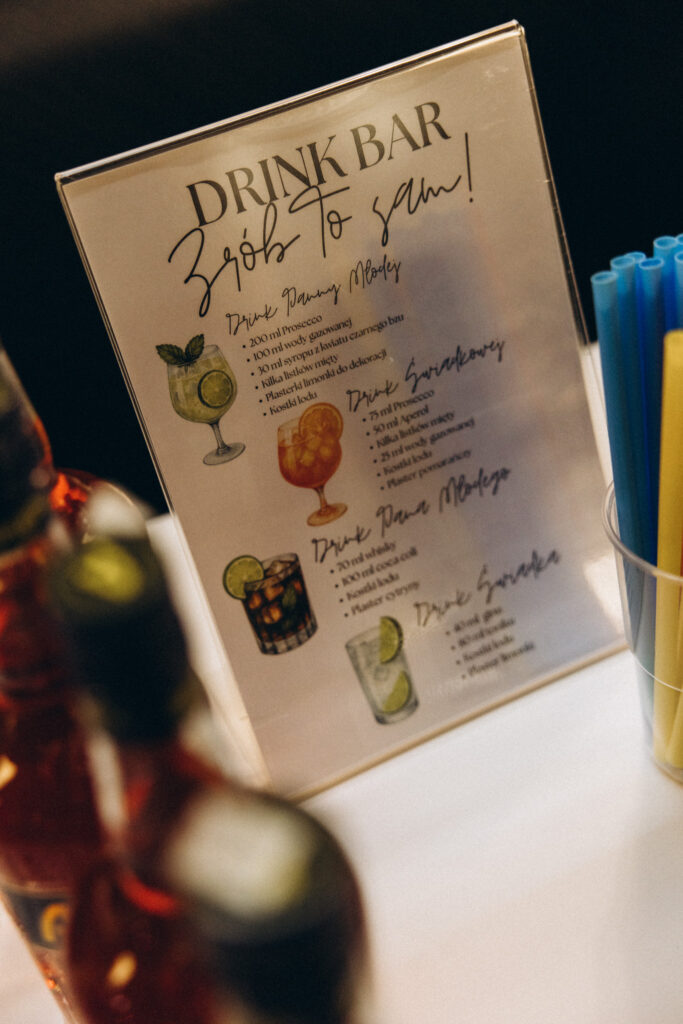 DRINK BAR
Zrób To sam!
Drink Panny Młodej
• 200 ml Prosecco
• 100 ml wody gazowanej
• 30 ml syropu z kwiatu czarnego bzu
• Kilka listków mięty
• Plasterki limonki do dekoracji
• Kostki lodu
Drink Świadkowej
• 75 ml Prosecco
• 50 ml Aperol
• Kilka listków mięty
• 25 ml wody gazowanej
• Kostki lodu
• Plaster pomarańczy
Drink Pana Młodego
• 70 ml whisky
• 100 ml coca coli
• Kostki lodu
• Plaster cytryny
Drink Świadka
• 40 ml ginu
• 80 ml toniku
• Kostki lodu
• Plaster limonki